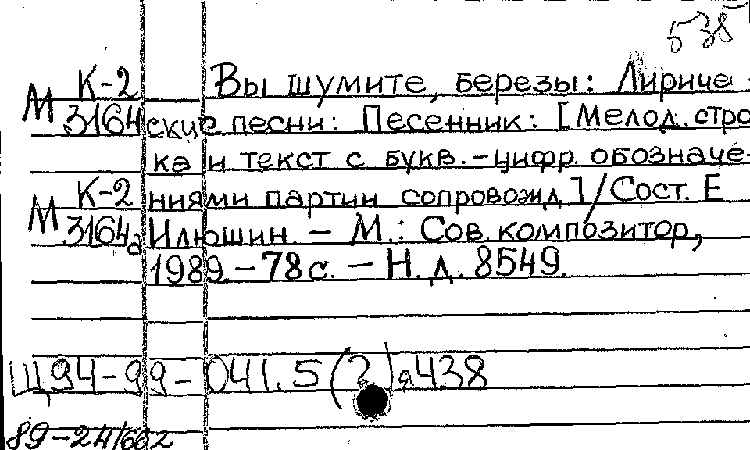 538
К-2 Вы шумите, березы: Лириче-
М 3164 ские песни: Песенник: [Мелод. стро
ка и текст с букв.-цифр. обозначе-
К-2 ниями партии сопровожд.]/Сост. Е
М 3164а Илюшин. - М.: Сов. композитор,
1989. - 78 с. - Н. д. 8549.
Щ94-99-041.5(2)я438